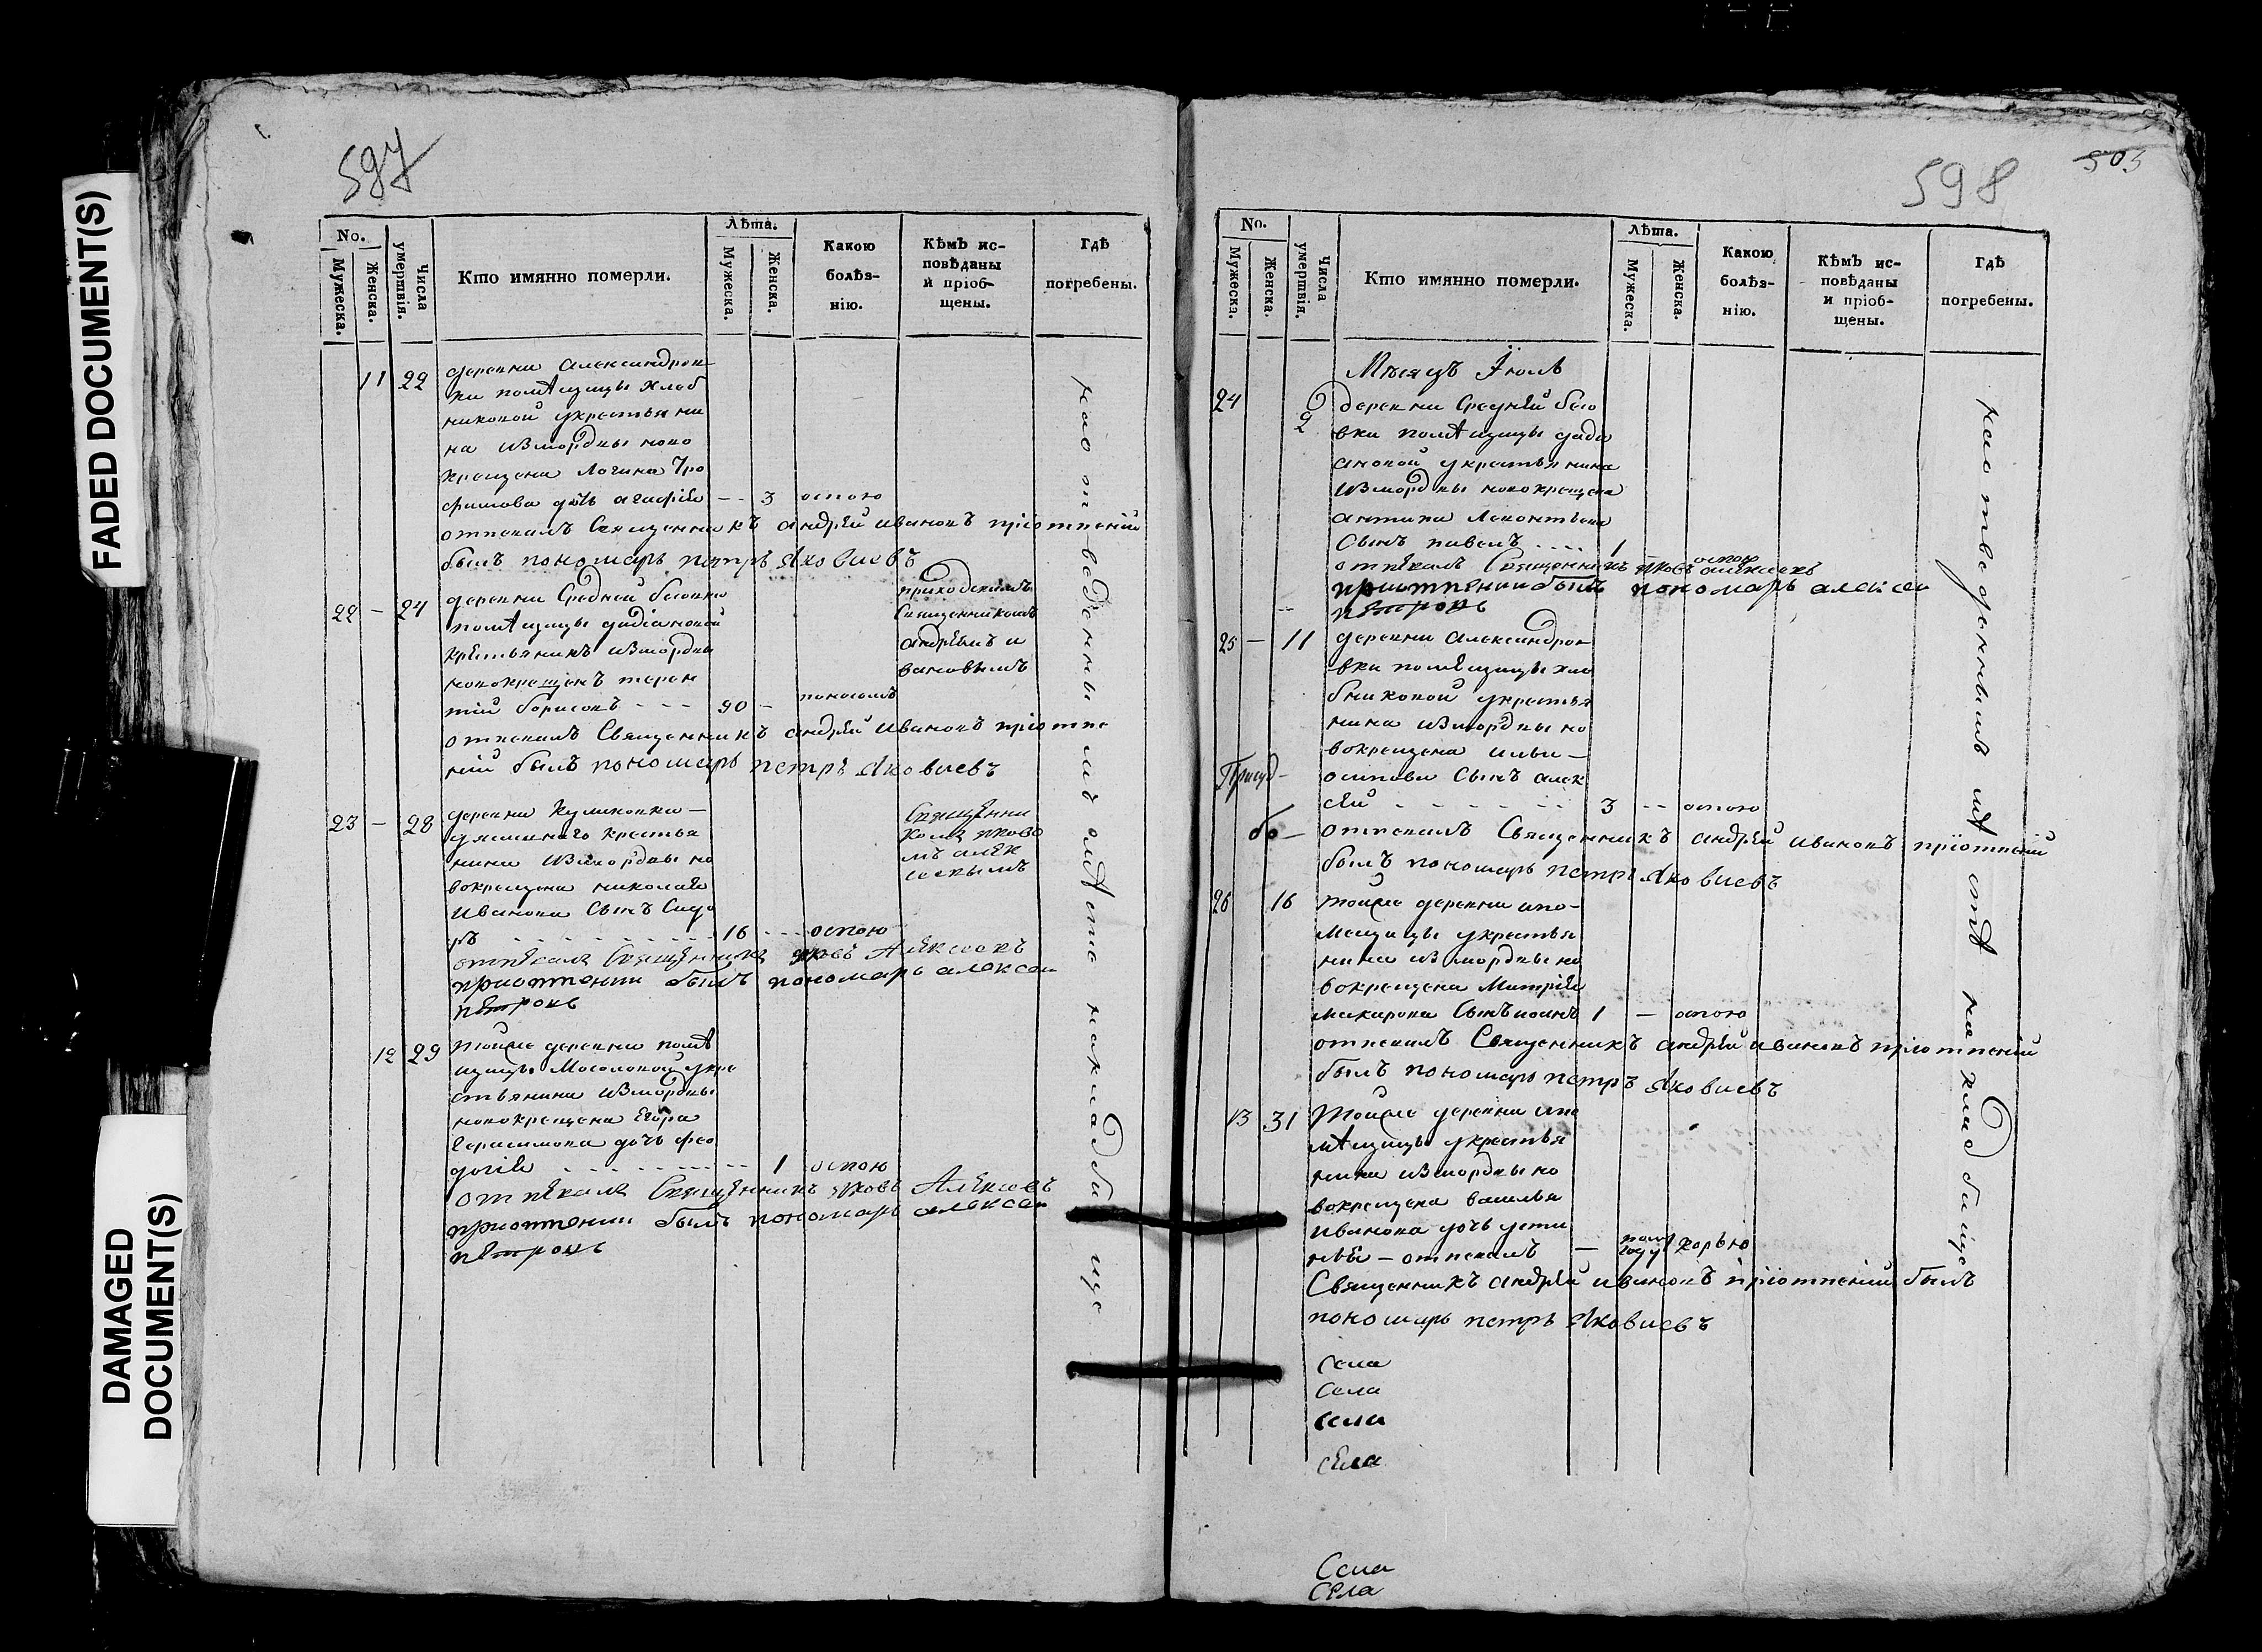 FADED DOCUMENT(S)
DAMAGED
DOCUMENT(S)
597
No.
Мужеска.
Женска.
Числа
умертвія.
Кто имянно померли.
Лѣта.
Мужеска.
Женска.
Какою
болѣз-
нію.
Кѣмъ ис-
повѣданы
и пріоб-
щены.
Гдѣ
погребены.
11 22 деревни Александров
ки помѣщицы хлеб
никовой укрестьяни
на изморды ново
крещена Логина Тро
фимова дочь агафия -- 3 оспою
отпевалъ Священникъ андрей ивановъ приотпении
былъ пономарь петръ Яковлевъ
22 - 24 деревни Средней
помѣщицы
крестьянинъ изморды
новокрещенъ терен
тий борисовъ - - - 90 - поносомъ
приходскимъ
Священникомъ
андреемъ и
вановымъ
отпевалъ Священникъ андрей ивановъ приотпе
нии былъ пономарь петръ Яковлевъ
23 - 28 деревни Куликовки -
крестья
нина изморды но
вокрещена николая
Иванова Сынъ Сидо
ръ - - - 16 - - - оспою
Священни
комъ яково
мъ алек
сеевымъ
отпевалъ Священникъ яковъ Алексеевъ
приотпении былъ пономарь алексеи
петровъ
12 29 тойже деревни помѣ
щицы Мосоловой укре
стьянина изморды
новокрещена Егора
Герасимова дочь фео
досия - - - 1 оспою
отпевалъ Священникъ яковъ Алексеевъ
приотпении былъ пономарь алексеи
петровъ
на отведенномъ мѣсте накладбище
598
505
No.
Мужеска.
Женска.
Числа
умертвія.
Кто имянно померли.
Лѣта.
Мужеска.
Женска.
Какою
болѣз-
нію.
Кѣмъ ис-
повѣданы
и пріоб-
щены.
Гдѣ
погребены.
Месяцъ Июль
24 2 деревни Средней
вки помѣщицы
ановой укрестьянина
изморды новокрещена
антипа Леонтьева
Сынъ павелъ . . . . 1 оспою
отпевалъ Священникъ яковъ алексеевъ
приотпении былъ пономарь алексеи
петровъ
25 - 11 деревни Александро
вки помещицы хле
бниковой укрестья
нина изморды но
вокрещена ильи -
осипова Сынъ алек
сей - - - 3 -- оспою
отпевалъ Священникъ андрей ивановъ приотпении
былъ пономарь петръ Яковлевъ
26 16 тойже деревни ипо-
мещицы укрестья
нина изморды но
вокрещена Митрия
макарова Сынъ иоанъ 1 - оспою
отпевалъ Священникъ андрей ивановъ приотпении
былъ пономарь петръ Яковлевъ
13 31 тойже деревни ипо
мѣщицы укрестья
нина изморды но
вокрещена василья
Иванова дочь усти
нья - отпевалъ - полъ году корью
Священникъ андрей ивановъ приотпении былъ
пономарь петръ Яковлевъ
на отведенномъ мѣстѣ на кладбище
Села
Села
Села
Села
Села
Села